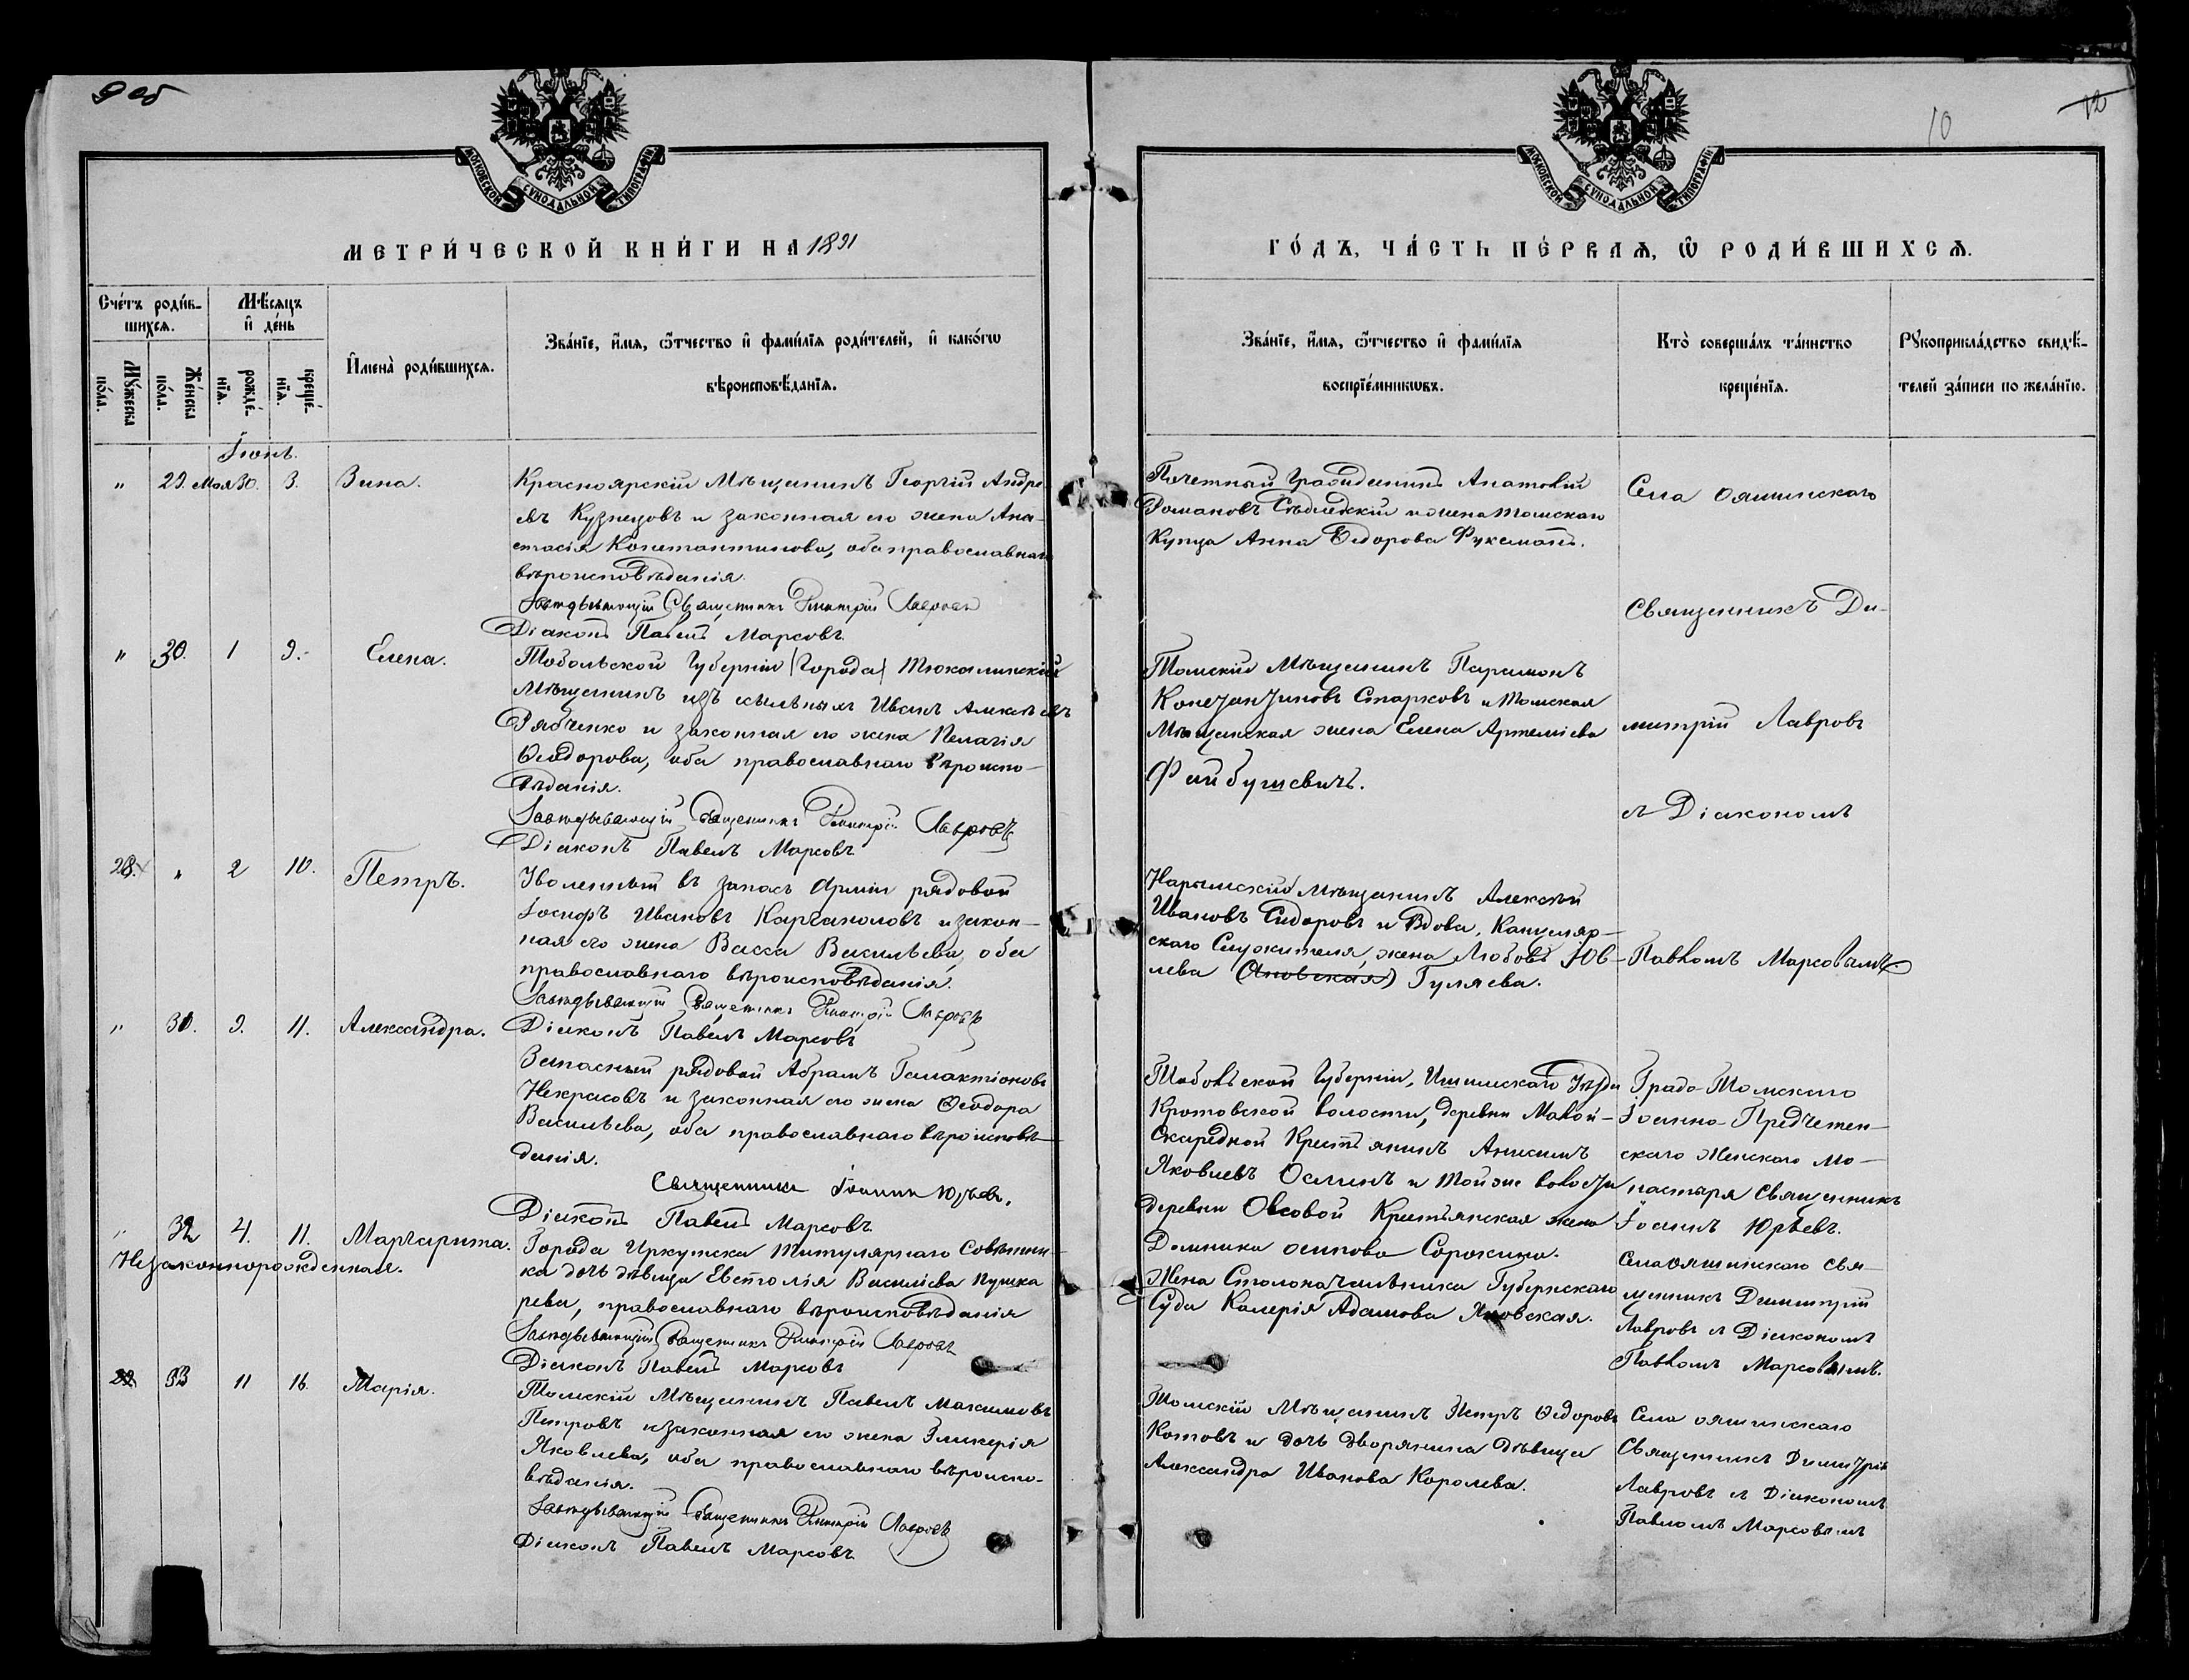 9 об
10
12
МОСКОВСКОЙ СУНОДАЛЬНОЙ ТИПОГРАФІИ
МОСКОВСКОЙ СУНОДАЛЬНОЙ ТИПОГРАФІИ
МЕТРИ́ЧЕСКОЙ КНИ́ГИ НА 1891
ГО́ДЪ, ЧА́СТЬ ПЕ́РВАѦ, Ѡ҆ РОДИ́ВШИХСѦ.
Сче́тъ роди́в-
шихсѧ.
Мꙋ́жеска по́ла.
Же́нска по́ла.
Мѣ́сѧцъ и҆ де́нь
рожде́-
нїѧ.
креще́-
нїѧ.
И҆мена̀ роди́вшихсѧ.
Зва́нїе, и҆́мѧ, ѻ҆́тчество и҆ фами́лїѧ роди́телей, и҆ како́гѡ
вѣроисповѣ́данїѧ.
Зва́нїе, и҆́мѧ, ѻ҆́тчество и҆ фами́лїѧ
воспрїе́мникѡвъ.
Кто̀ соверша́лъ та́инство
креще́нїѧ.
Рꙋкоприкла́дство свидѣ́-
телей за́писи по жела́нїю.
Іюнь.
" 29. Мая 30. 3. Зина.
Красноярскій Мѣщанинъ Георгій Андре
евъ Кузнецовъ и законная его жена Ана-
стасія Константинова, оба православнаго
вѣроисповѣданія.
Завѣдывающій Священникъ Димитрій Лавровъ
Діаконъ Павелъ Марсовъ
Почетный Гражданинъ Анатолій
Романовъ и жена томскаго
Купца Анна Ѳедорова Фуксманъ.
Села Ояшинскаго
Священникъ Ди-
митрій Лавровъ
съ Діакономъ
Павломъ Марсовымъ
" 30. 1 9. Елена.
Тобольской Губерніи (Города) Тюкалинскій
Мѣщанинъ изъ ссыльныхъ Иванъ Алексѣевъ
Рябченко и законная его жена Пелагія
Ѳеодорова, оба православнаго вѣроиспо-
вѣданія.
Завѣдывающій Священникъ Димитрій Лавровъ
Діаконъ Павелъ Марсовъ
Томскій Мѣщанинъ Парамонъ
Константиновъ Старковъ и Томская
Мѣщанская жена Елена Артеміева
Файбушевичъ.
28. " 2 10. Петръ.
Уволенный въ запасъ Арміи рядовой
Іосифъ Ивановъ Карганоловъ и закон-
ная его жена Васса Васильева, оба
православнаго вѣроисповѣданія.
Завѣдывающій Священникъ Димитрій Лавровъ
Діаконъ Павелъ Марсовъ
Нарымскій Мѣщанинъ Алексѣй
Ивановъ Сидоровъ и Вдова, Канцеляр-
скаго Служителя, жена Любовь Іов-
лева (Яновская) Гуляева.
" 31. 9. 11. Александра.
Запасный рядовой Абрамъ Галактіоновъ
Некрасовъ и законная его жена Ѳеодора
Васильева, оба православнаго вѣроисповѣ-
данія.
Священникъ Іоаннъ Юрьевъ.
Діаконъ Павелъ Марсовъ
Тобольской Губерніи, Ишимскаго Уѣзда
Кротовской волости, деревни Малой-
Скаредной Крестьянинъ Анисимъ
Яковлевъ Осминъ и той же волости
деревни Овсовой Крестьянская жена
Домника Осипова Сорокина.
Градо-Томскаго
Іоанно-Предтечен-
скаго Женскаго Мо-
настыря Священникъ
Іоаннъ Юрьевъ.
" 32 4. 11. Маргарита.
Незаконнорожденная.
Города Иркутска Титулярнаго Совѣтни-
ка дочь дѣвица Евстолія Васильева Пушка
рева, православнаго вѣроисповѣданія
Завѣдывающій Священникъ Димитрій Лавровъ
Діаконъ Павелъ Марсовъ
Жена Столоначальника Губернскаго
Суда Калерія Адамова Яновская.
Села Ояшинскаго Свя-
щенникъ Димитрій
Лавровъ съ Діакономъ
Павломъ Марсовымъ.
29. 33 11 16. Марія.
Томскій Мѣщанинъ Павелъ Максимовъ
Петровъ и законная его жена Гликерія
Яковлева, оба православнаго вѣроиспо-
вѣданія.
Завѣдывающій Священникъ Димитрій Лавровъ
Діаконъ Павелъ Марсовъ
Томскій Мѣщанинъ Петръ Ѳедоровъ
Котовъ и дочь Дворянина дѣвица
Александра Иванова Королева.
Села Ояшинскаго
Священникъ Димитрій
Лавровъ съ Діакономъ
Павломъ Марсовымъ